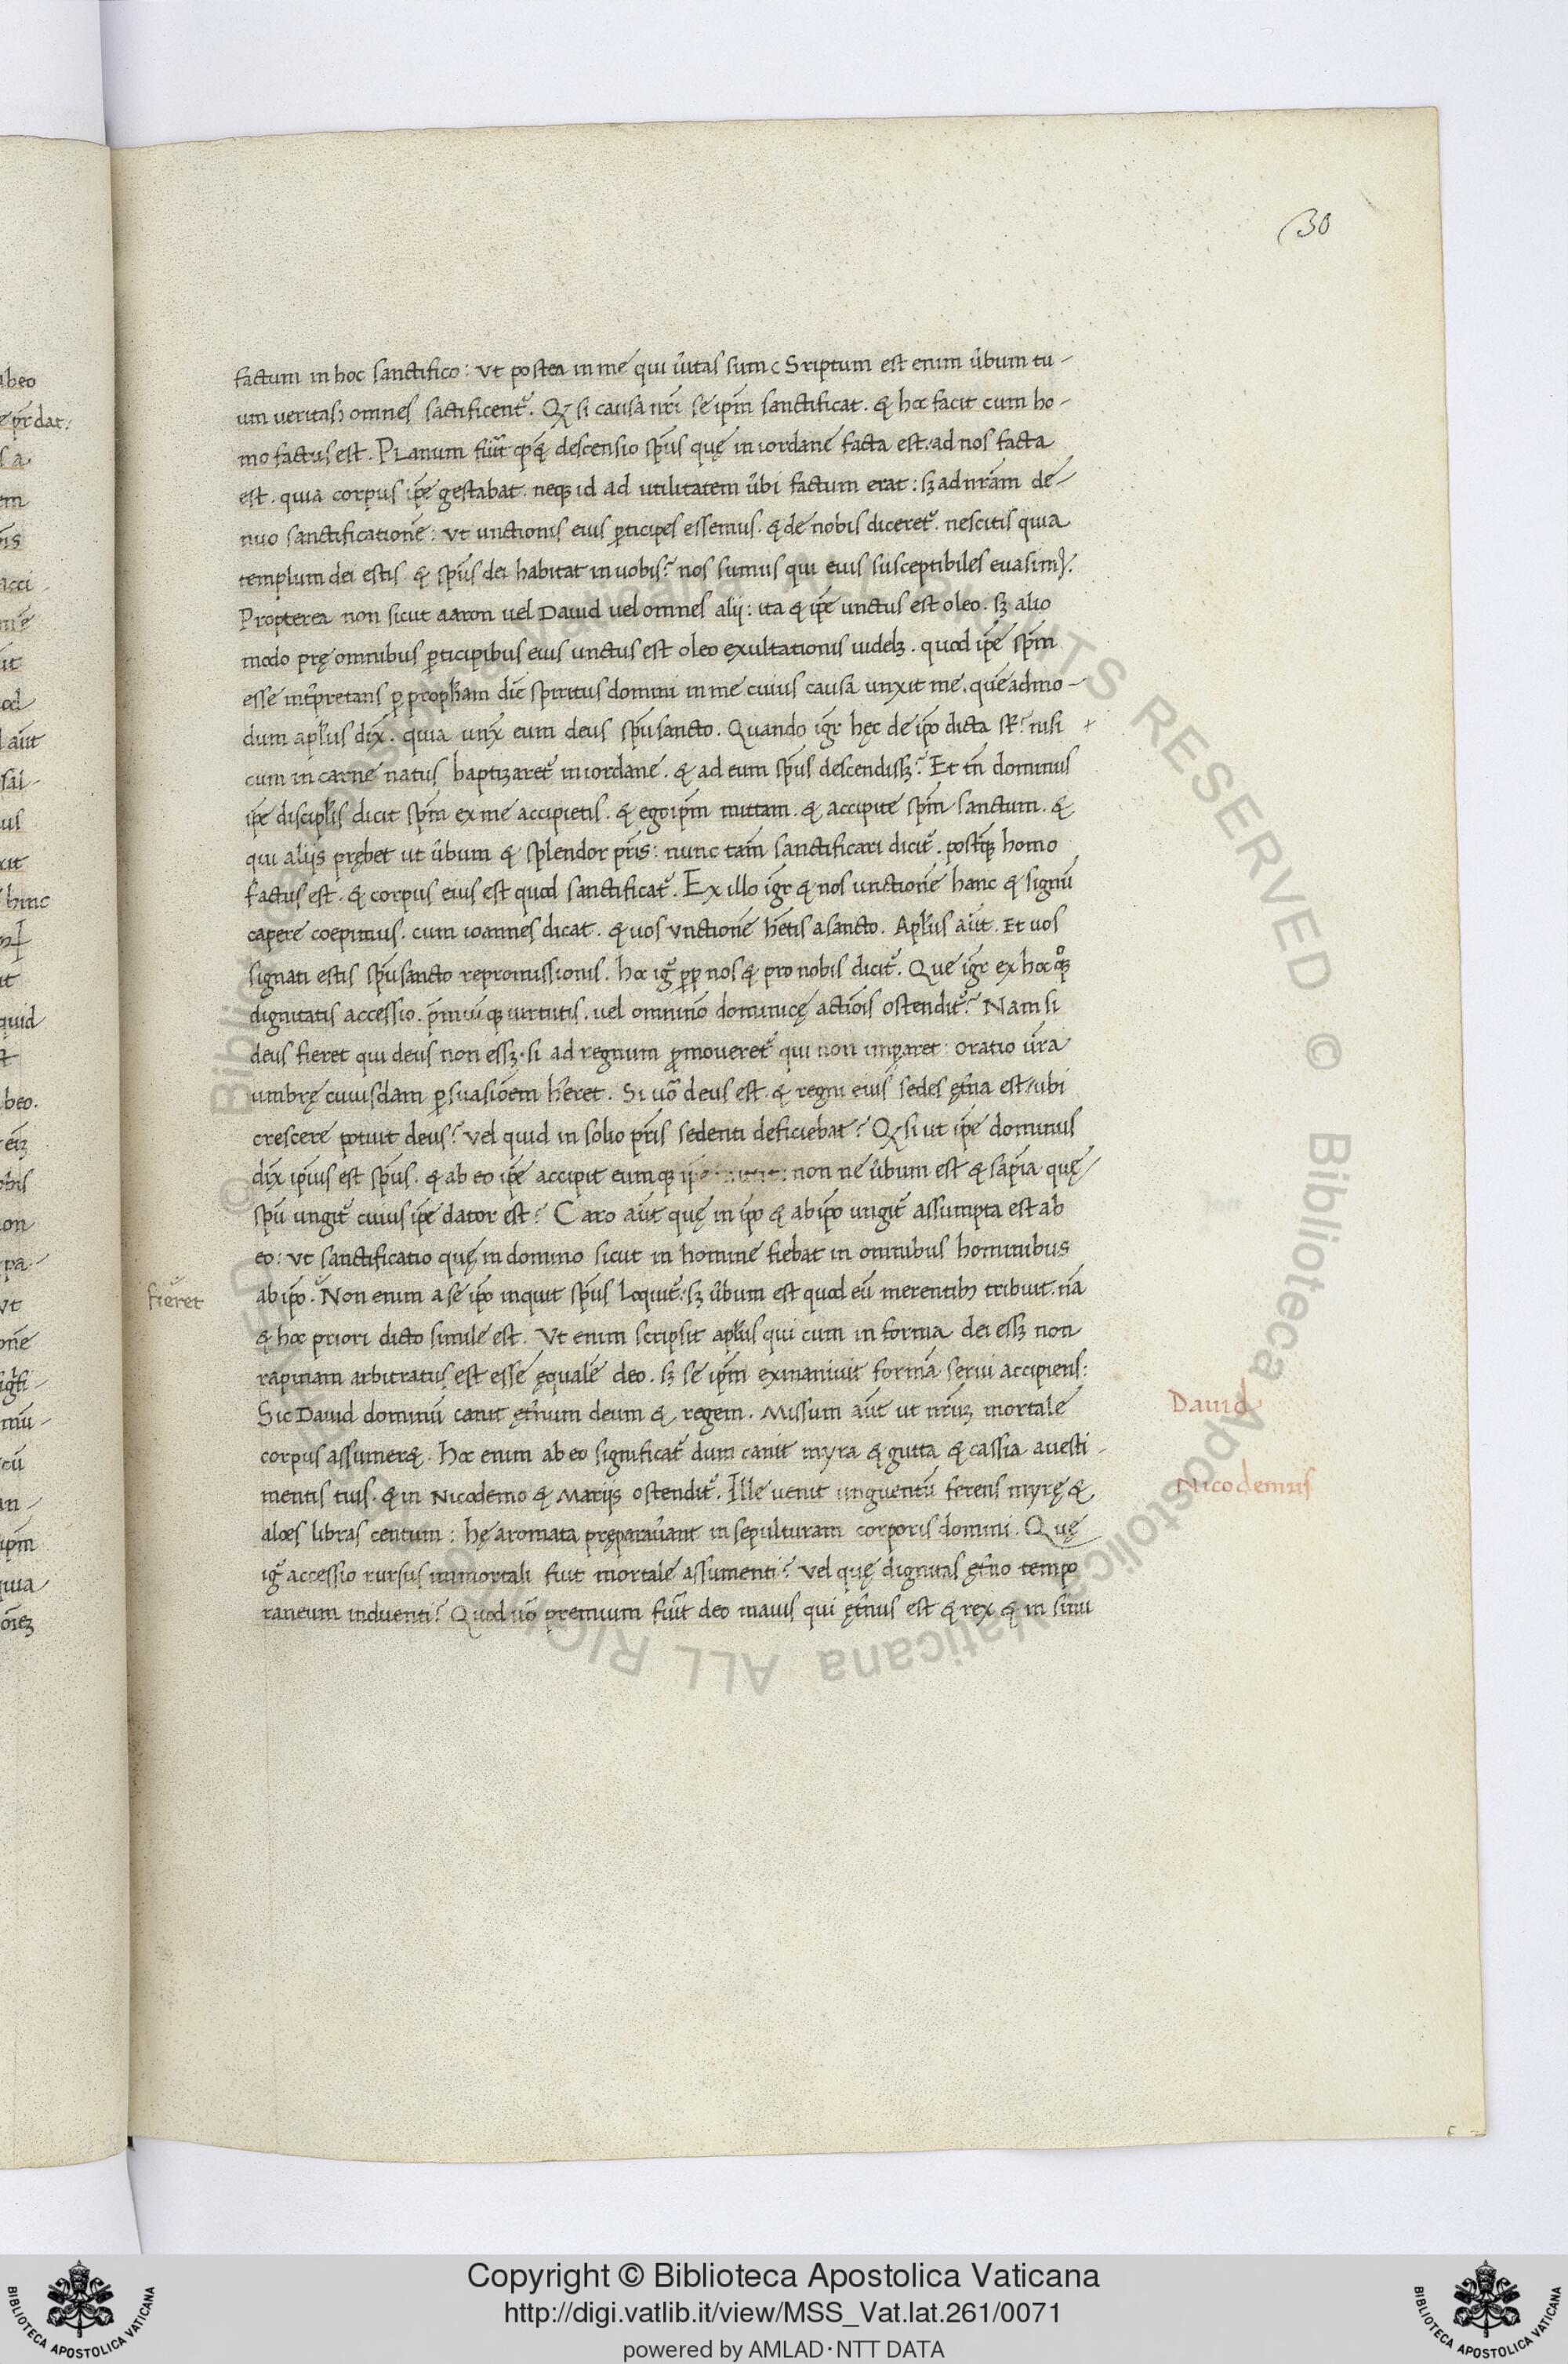 30
factum in hoc sanctifico: ut postea in me qui ũitas sum (Sriptum est enim ũbum tu-
um veritas) omnes sactificent᷑. Qđ si causa nr̃i se ip̃m sanctificat. & hoc facit cum ho-
mo factus est. Planum fũit descensio sp̃us quę in iordane facta est: ad nos facta
est. quia corpus ip̃e gestabat. neqꝫ id ad utilitatem ũbi factum erat: sꝫ ad nr̃am de-
nuo sanctificationẽ: Vt unctionis eius ꝑticipes essemus. & de nobis diceret᷑. nescitis quia
templum dei estis & sp̃us dei habitat in uobis? nos sumus qui eius susceptibiles euasimꝰ.
Propterea non sicut aaron uel Dauid uel omnes alij: ita & ip̃e unctus est oleo. sꝫ alio
modo pre omnibus ꝑticipibus eius unctus est oleo exultationis uidelꝫ. quod ip̃e sp̃m
esse int̃pretans ꝑ proph̃am dic̃ spiritus domini in me cuius causa unxit me. quẽadmo-
dum apl̃us dix̃. quia unx̃ eum deus sp̃u sancto. Quando ig̃r hęc de ip̃o dicta st̃? nisi +
cum in carne natus baptizaret᷑ in iordane. & ad eum sp̃us descendissꝫ? Et tñ dominus
ip̃e discipl̃is dicit sp̃m ex me accipietis. & ego ip̃m mittam. & accipite sp̃m sanctum. &
qui alijs prębet ut ũbum & splendor pr̃is: nunc tam̃ sanctificari dicit᷑. postqꝫ homo
factus est. & corpus eius est quod sanctificat᷑. Ex illo ig̃r & nos unctionẽ hanc & signũ
capere coepimus. cum ioannes dicat. & uos unctionẽ hẽtis a sancto. Apl̃us aũt. Et uos
signati estis sp̃u sancto repromissionis. hoc ig᷑ pp̃ nos & pro nobis dicit᷑. Que ig̃r ex hoc
dignitatis accessio. p̃miũqꝫ uirtutis. uel omnino dominicę actiõis ostendit᷑? Nam si
deus fieret qui deus non essꝫ. si ad regnum ꝓmoueret᷑ qui non imꝑaret: oratio ũra
umbrę cuiusdam ꝑsuasiõem hẽret. Si uõ deus est. & regni eius sedes ęt̃na est: ubi
crescere potuit deus? vel quid in solio pr̃is sedenti deficiebat? Qđ si ut ip̃e dominus
dix̃ ipsius est sp̃us. & ab eo ip̃e accipit eumqꝫ non ne ũbum est & sap̃ia quę
sp̃u ungit᷑ cuius ip̃e dator est? Caro aũt quę in ip̃o & ab ip̃o ungit᷑ assumpta est ab
eo: ut sanctificatio quę in domino sicut in homine fiebat in omnibus hominibus
ab ip̃o. Non enim a se ip̃o inquit sp̃us loquit᷑: sꝫ ũbum est quod eũ merentibꝫ tribuit. nã
fieret
& hoc priori dicto simile est. Vt enim scripsit apl̃us qui cum in forma dei essꝫ non
rapinam arbitratus est esse ęquale deo. sꝫ se ip̃m exinaniuit formã serui accipiens:
Sic Dauid dominũ canit ęt̃num deum & regem. Missum aũt ut nr̃uꝫ mortale
Dauid
corpus assumer&. Hoc enim ab eo significat᷑ dum canit myra & gutta & cassia a uesti-
mentis tuis. & in Nicodemo & Marijs ostendit᷑. Ille uenit unguentũ ferens myrę &
Nicodemus
aloes libras centum: hę aromata pręparaũant in sepulturam corporis domini. Quę
ig᷑ accessio rursus immortali fuit mortale assumenti? Vel quę dignitas ęt̃no tempo
raneum induenti? Quod uõ premium fũit deo maius qui ęt̃nus est & rex & in sinu
Copyright © Biblioteca Apostolica Vaticana
http://digi.vatlib.it/view/MSS_Vat.lat.261/0071
powered by AMLAD·NTT DATA